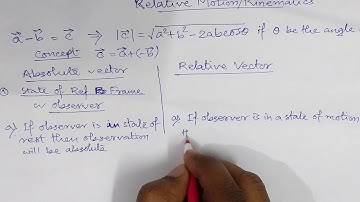 Relative Motion/Kinematics
a⃗ - b⃗ = c⃗ ⇒ |c⃗| = √a²+b²-2abcosθ if θ be the angle
Concept c⃗ = a⃗ + (-b⃗)
Absolute vector
Relative Vector
State of Ref Frame
observer
a) If observer is in state of
rest then observation
will be absolute
a) If observer is in a state of motion